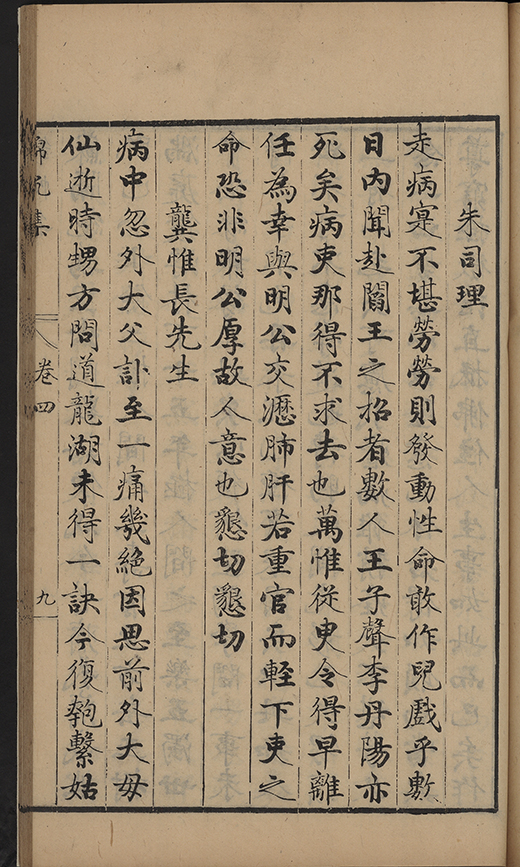 朱司理
走病寔不堪勞勞則發動性命敢作兒戲乎數
日內聞赴閻王之招者數人王子聲李丹陽亦
死矣病吏那得不求去也萬惟從臾令得早離
任為幸與明公交瀝肺肝若重官而輕下吏之
命恐非明公厚故人意也懇切懇切
龔惟長先生
病中忽外大父訃至一痛幾絕因思前外大母
仙逝時甥方問道龍湖未得一訣今復匏繫姑
錦帆集
卷四
九